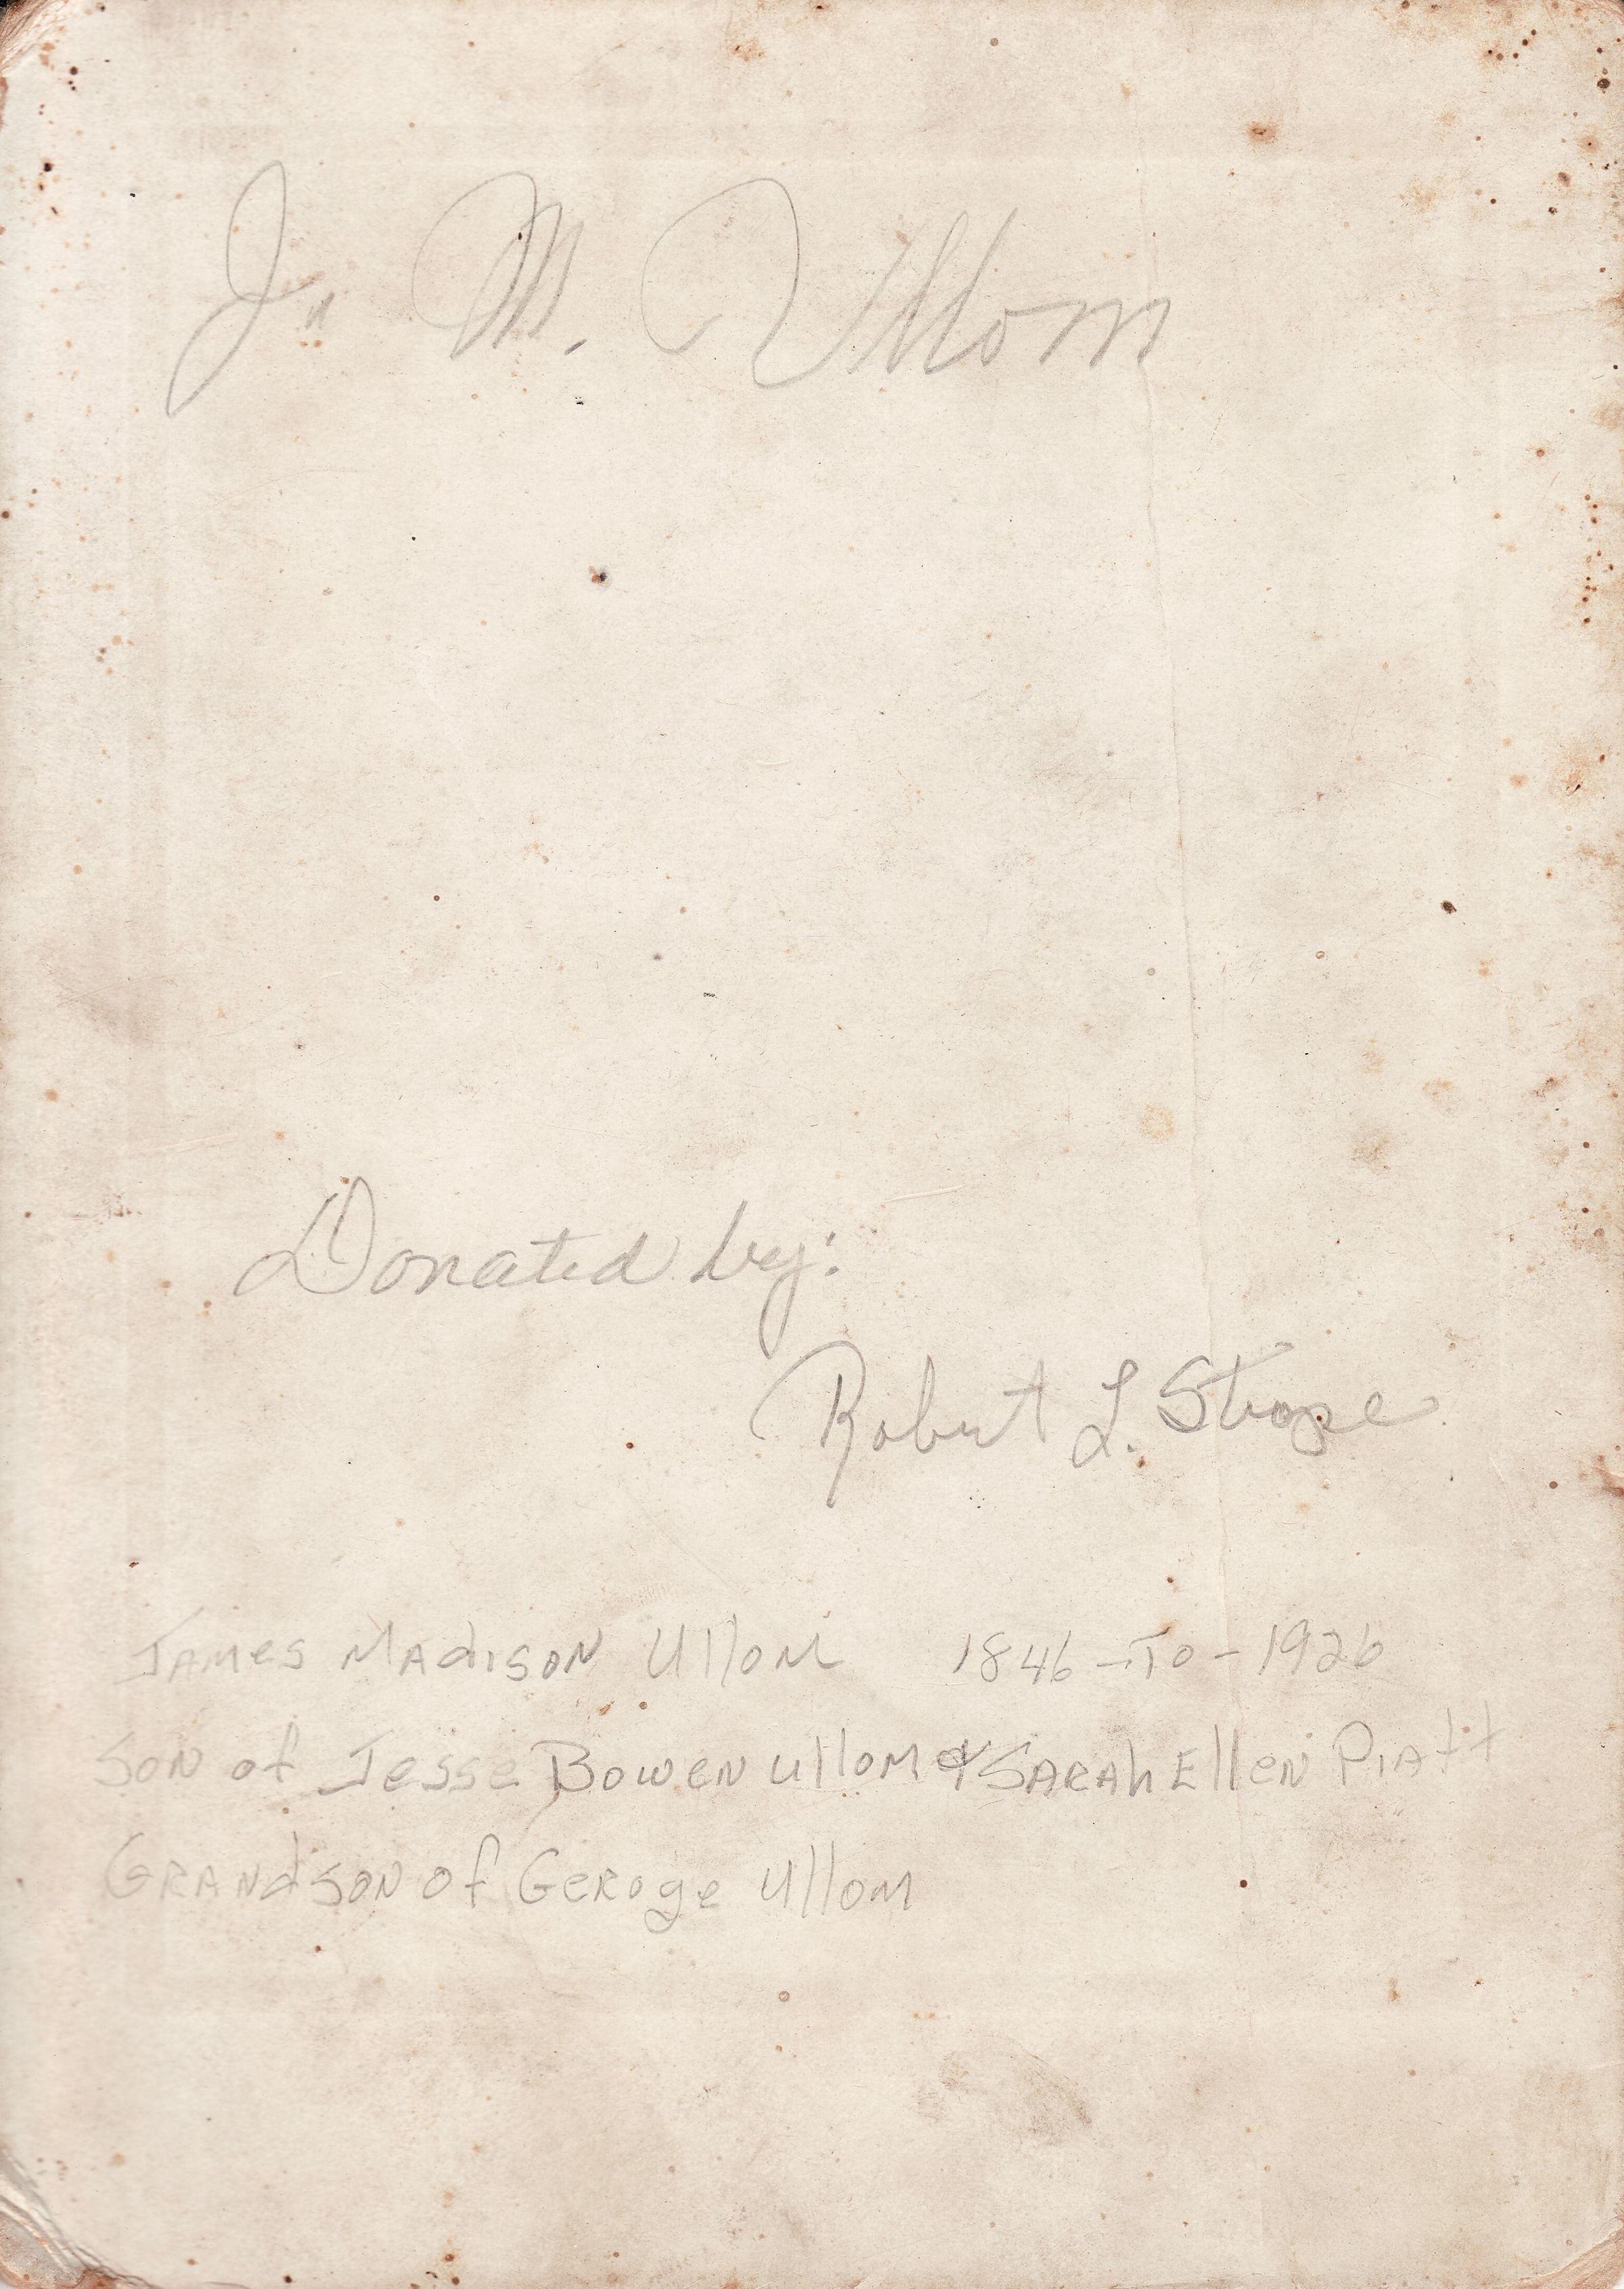 J. M. Ullom
Donated by:
Robert L. Strope
James Madison Ullom 1846 - To - 1926
Son of Jesse Bowen Ullom & Sarah Ellen Piatt
Grandson of Geroge Ullom